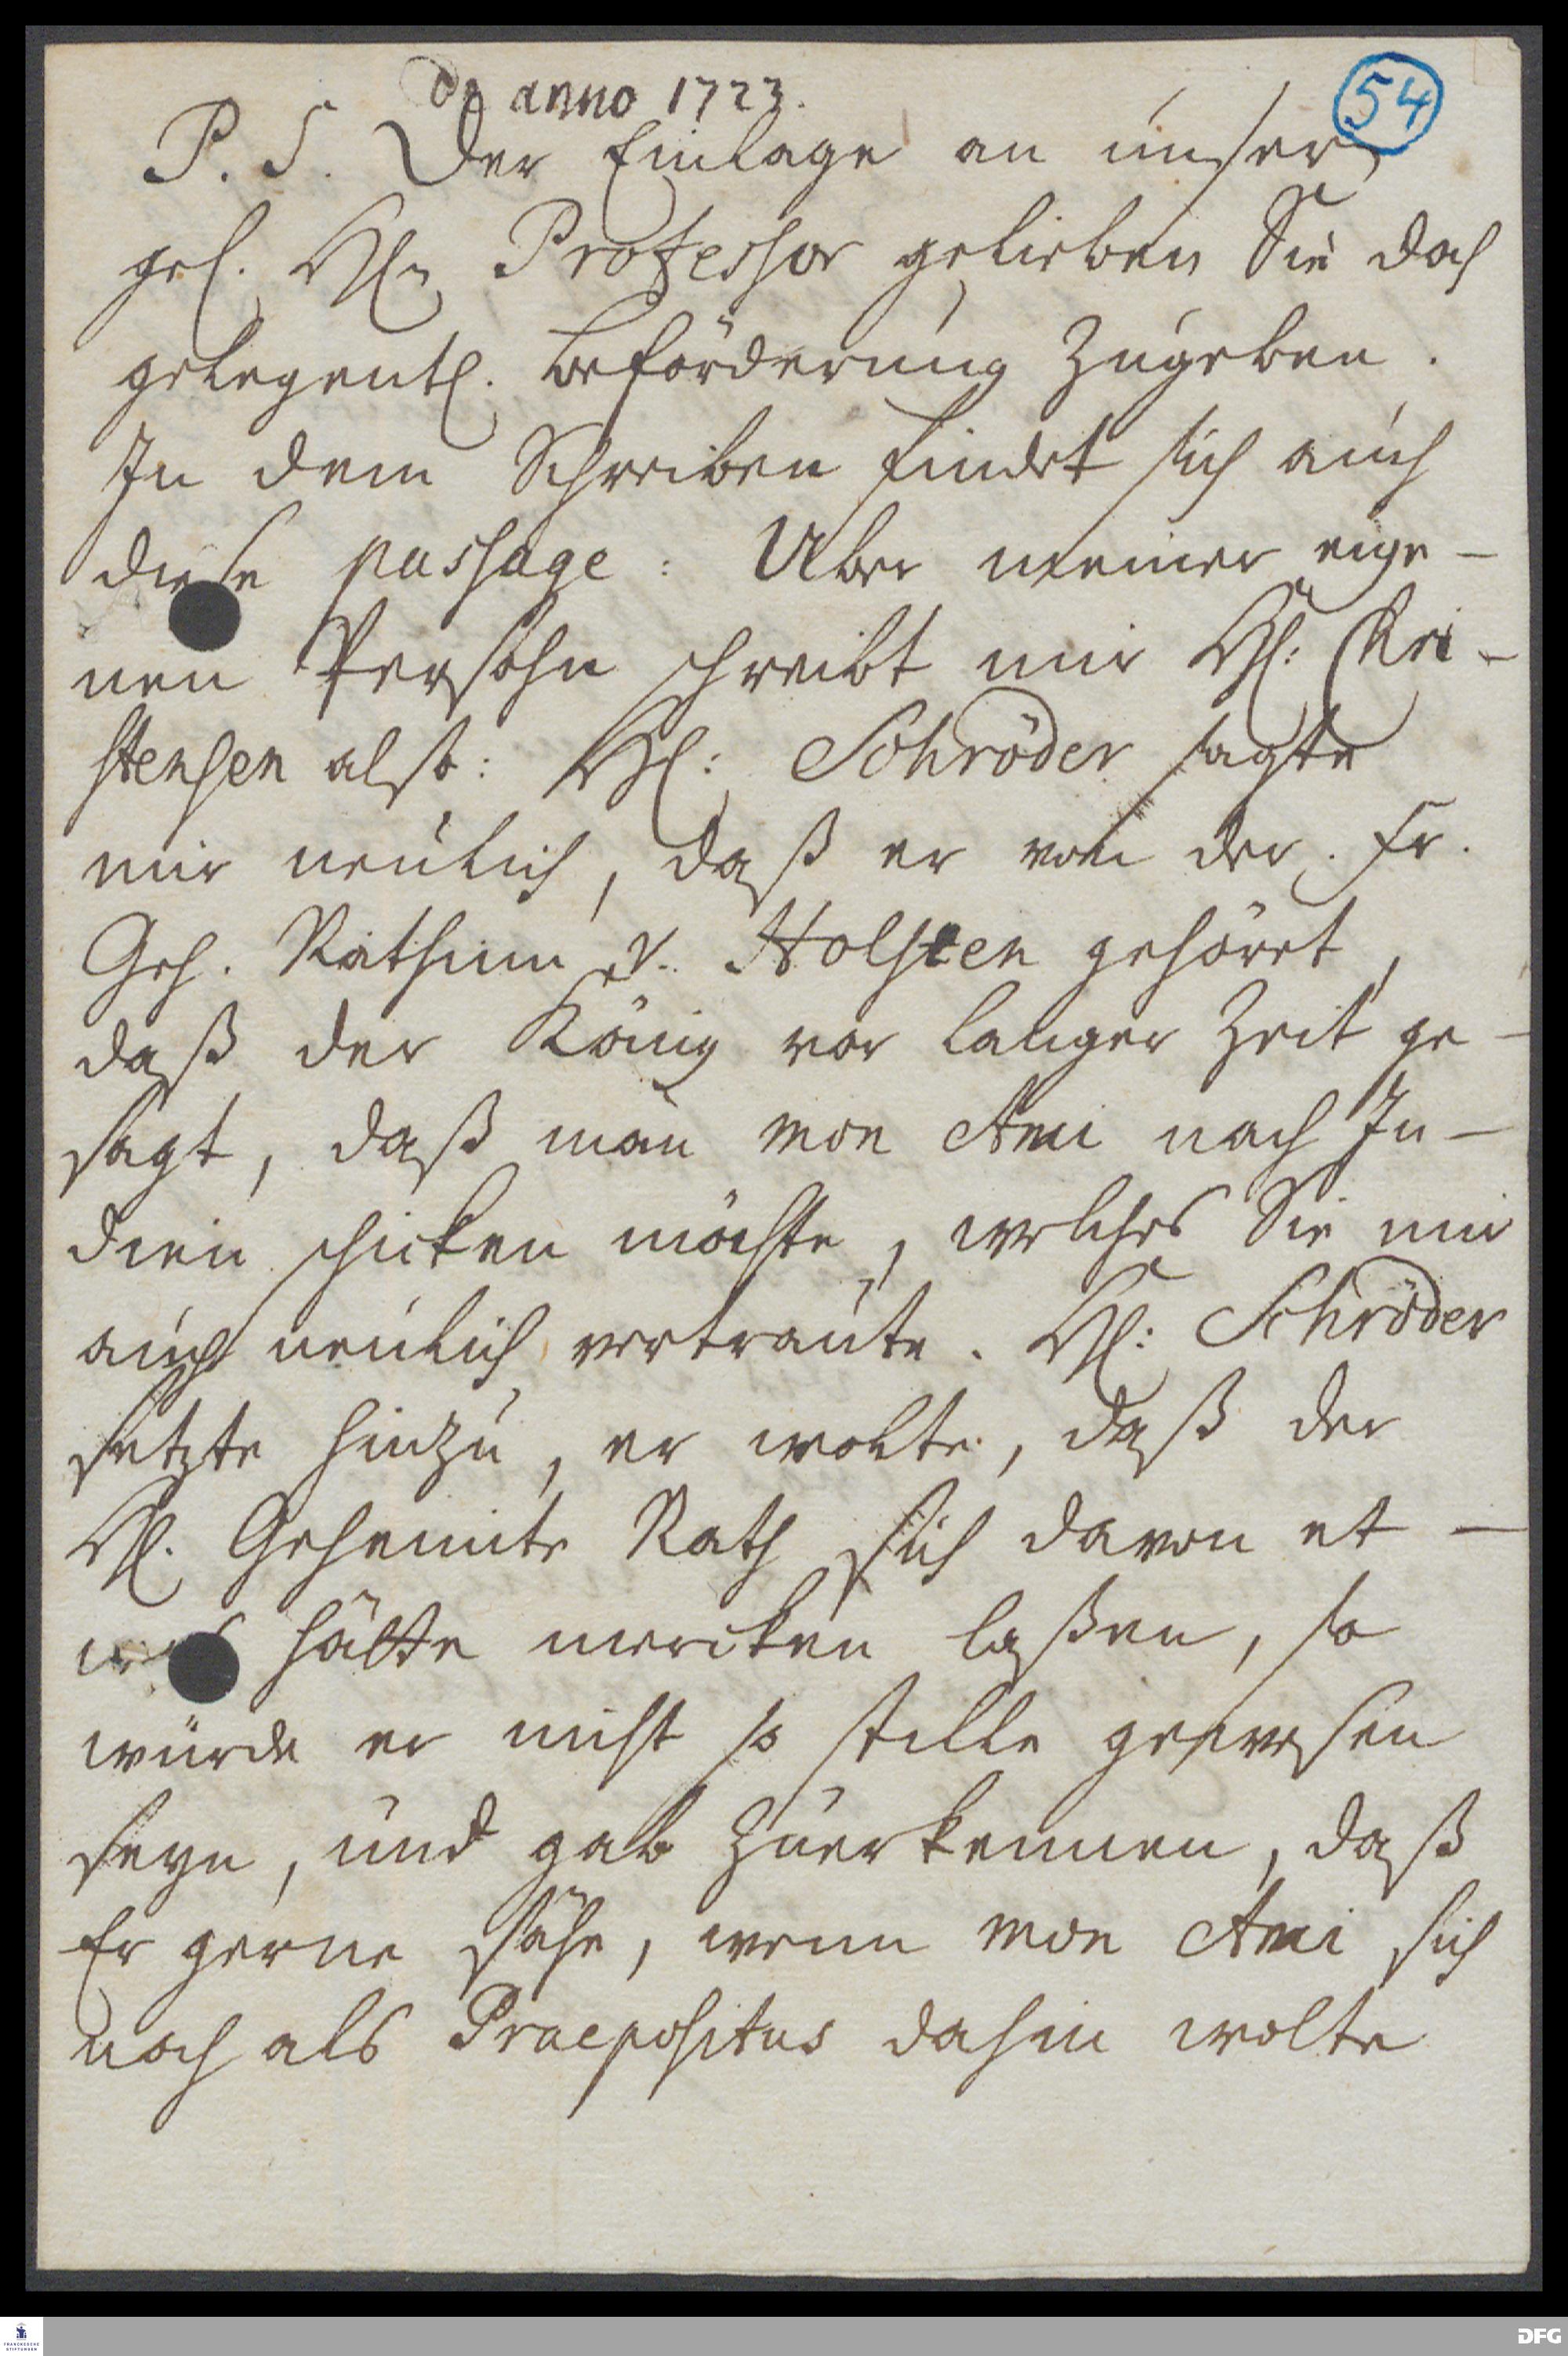 de anno 1723.
54
P. S. Der Einlage an unsern
gel. Hln Professor gelieben Sie doch
gelegentl. beförderung zugeben.
In dem Schreiben findet sich auch
diese passage: Uber meiner eige-
nen Persohn schreibt mir Hl: Chri-
stensen also: Hl: Schröder sagte
mir neulich, daß er von der Fr.
Geh. Räthinn v. Holsten gehöret,
daß der König vor langer Zeit ge-
sagt, daß man mon Ami nach In-
dien schicken möchte, welches Sie mir
auch neulich vertraute. Hl: Schröder
setzte hinzu, er wolte, daß der
Hl. Geheimte Rath sich davon et-
was hätte mercken laßen, so
würde er nicht so stille gewesen
seyn, und gab zuerkennen, daß
Er gerne sähe, wenn mon Ami sich
noch als Praepositus dahin wolte
FRANCKESCHE STIFTUNGEN
DFG